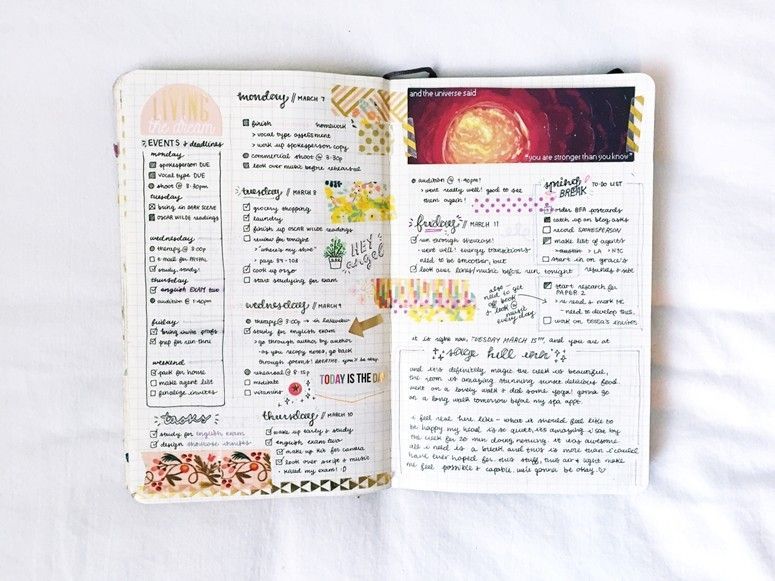 LIVING
the dream
EVENTS + deadlines
monday
spokesperson DUE
vocal type DUE
shoot @ 8:30pm
tuesday
bring in dark scene
OSCAR WILDE readings
wednesday
therapy @ 3:00p
study, study!
thursday
english EXAM two
audition @ 1:40pm
friday
bring invite proofs
prep for run thru
weekend
pack for home
make agent list
finalize invites
tasks
study for english exam
design showcase invites
monday // MARCH 7
finish homework
> vocal type assessment
> work up spokesperson copy
commercial shoot @ 8:30p
look over music before rehearsal
tuesday // MARCH 8
grocery shopping
laundry
finish up OSCAR WILDE readings
review for tonight
> "where's my shoe"
> pages 84-108
cook up orzo
start studying for exam
HEY
angel
wednesday // MARCH 9
therapy @ 3:00p
study for english exam
> go through author by author
as you recopy notes, go back
through poems! BREATHE. you'll be okay.
rehearsal @ 8:15p
meditate
vitamins
TODAY IS THE DAY
thursday // MARCH 10
wake up early & study
english exam two
make up kit for camera
look over script & music
killed my exam! :D
and the universe said
"you are stronger than you know"
audition @ 1:40pm!
went really well! good to see
them again!
friday // MARCH 11
run through showcase!
went well! energy, transitions
need to be smoother, but
look over lines/music before run tonight
also
need to get
off book
& look @
music
every day
spring
BREAK TO-DO LIST
order BFA postcards
catch up on blog asks
record SPOKESPERSON
make list of agents
> LA > NYC
start in on grace's
resumes & site
start research for
PAPER 2
> need to develop this.
work on tessa's invites
it is right now, TUESDAY MARCH 15TH, and you are at
sage hill inn
and it's definitely magic. the view is beautiful,
the room is amazing. stunning sunset. delicious food.
went on a lovely walk & did some yoga! gonna go
on a long walk tomorrow before my spa appt.
i feel real here. like - what it should feel like to
be happy. my head is so quiet. it's amazing. i sat by
the creek for 20 min doing nothing. it was awesome.
all i need is a break and this is more than i could
have ever hoped for. this stuff, this air & light make
me feel possible & capable. we're gonna be okay. ♡